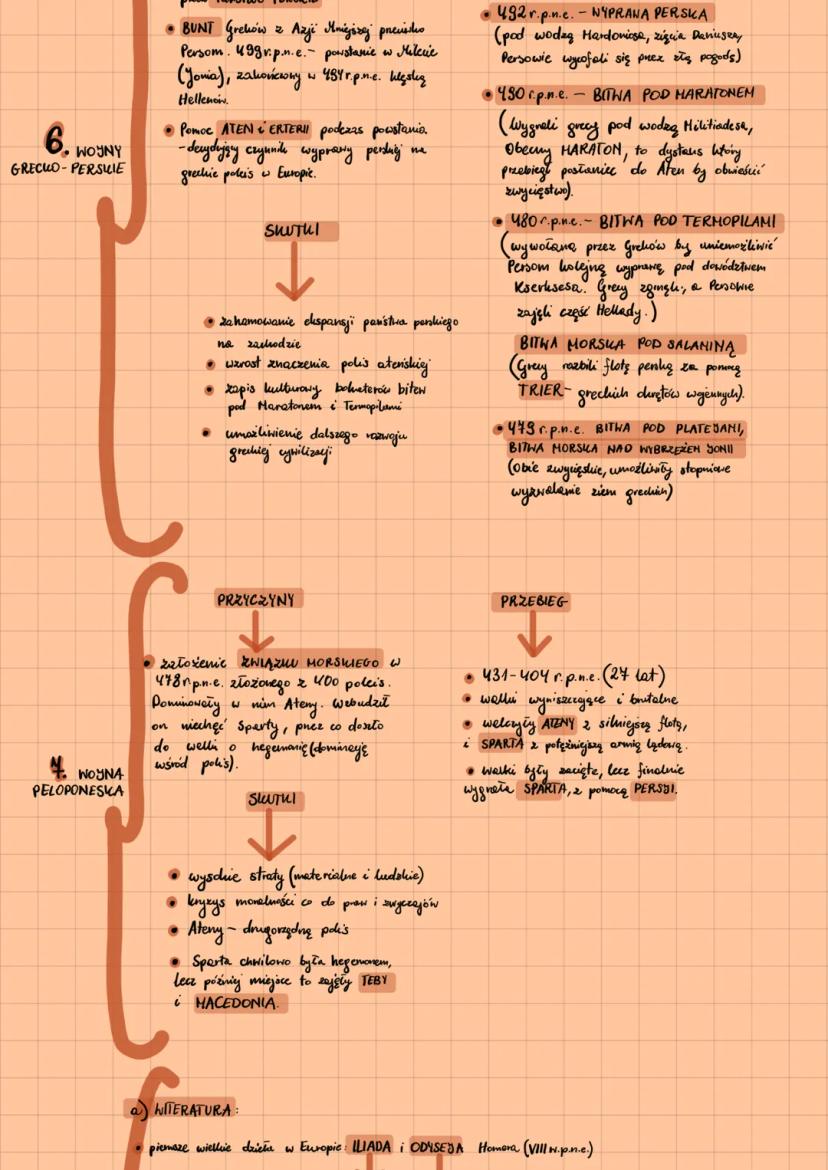 BUNT Greków z Azji Mniejszej przeciwko
Persom. 499 r.p.n.e. – powstanie w Milecie
(Jonia), zakończony w 494 r.p.n.e. klęską
Hellenów.
Pomoc ATEN i ERTERII podczas powstania.
- decydujący czynnik wyprawy perskiej na
greckie polis w Europie.
6. WOJNY
GRECKO-PERSKIE
SKUTKI
zahamowanie ekspansji państwa perskiego
na zachodzie
wzrost znaczenia polis ateńskiej
zapis kulturowy bohaterów bitew
pod Maratonem i Termopilami
umożliwienie dalszego rozwoju
greckiej cywilizacji
492 r.p.n.e. – WYPRAWA PERSKA
(pod wodzą Mardoniosa, zięcia Dariusza,
Persowie wycofali się przez złą pogodę)
490 r.p.n.e. – BITWA POD MARATONEM
(Wygrali grecy pod wodzą Militiadesa,
Obecny MARATON, to dystans który
przebiegł posłaniec do Aten by obwieścić
zwycięstwo).
480 r.p.n.e. – BITWA POD TERMOPILAMI
(wywołana przez Greków by uniemożliwić
Persom kolejną wyprawę pod dowództwem
Kserksesa. Grecy zginęli, a Persowie
zajęli część Hellady.)
BITWA MORSKA POD SALAMINĄ
(Grecy rozbili flotę perską za pomocą
TRIER – greckich okrętów wojennych).
479 r.p.n.e. BITWA POD PLATEJAMI,
BITWA MORSKA NAD WYBRZEŻEM JONII
(Obie zwycięskie, umożliwiły stopniowe
wyzwalanie ziem greckich)
7. WOJNA
PELOPONESKA
PRZYCZYNY
założenie ZWIĄZKU MORSKIEGO w
478 r.p.n.e. złożonego z 400 poleis.
Dominowały w nim Ateny. Wzbudził
on niechęć Sparty, przez co doszło
do walki o hegemonię (dominację
wśród polis).
SKUTKI
wysokie straty (materialne i ludzkie)
kryzys moralności co do praw i zwyczajów
Ateny – drugorzędną polis
Sparta chwilowo była hegemonem,
lecz później miejsce to zajęły TEBY
i MACEDONIA.
PRZEBIEG
431-404 r.p.n.e. (27 lat)
walki wyniszczające i brutalne
walczyły ATENY z silniejszą flotą,
i SPARTA z potężniejszą armią lądową.
walki były zacięte, lecz finalnie
wygrała SPARTA, z pomocą PERSJI.
a) LITERATURA:
pierwsze wielkie dzieła w Europie: ILIADA i ODYSEJA Homera (VIII w.p.n.e.)